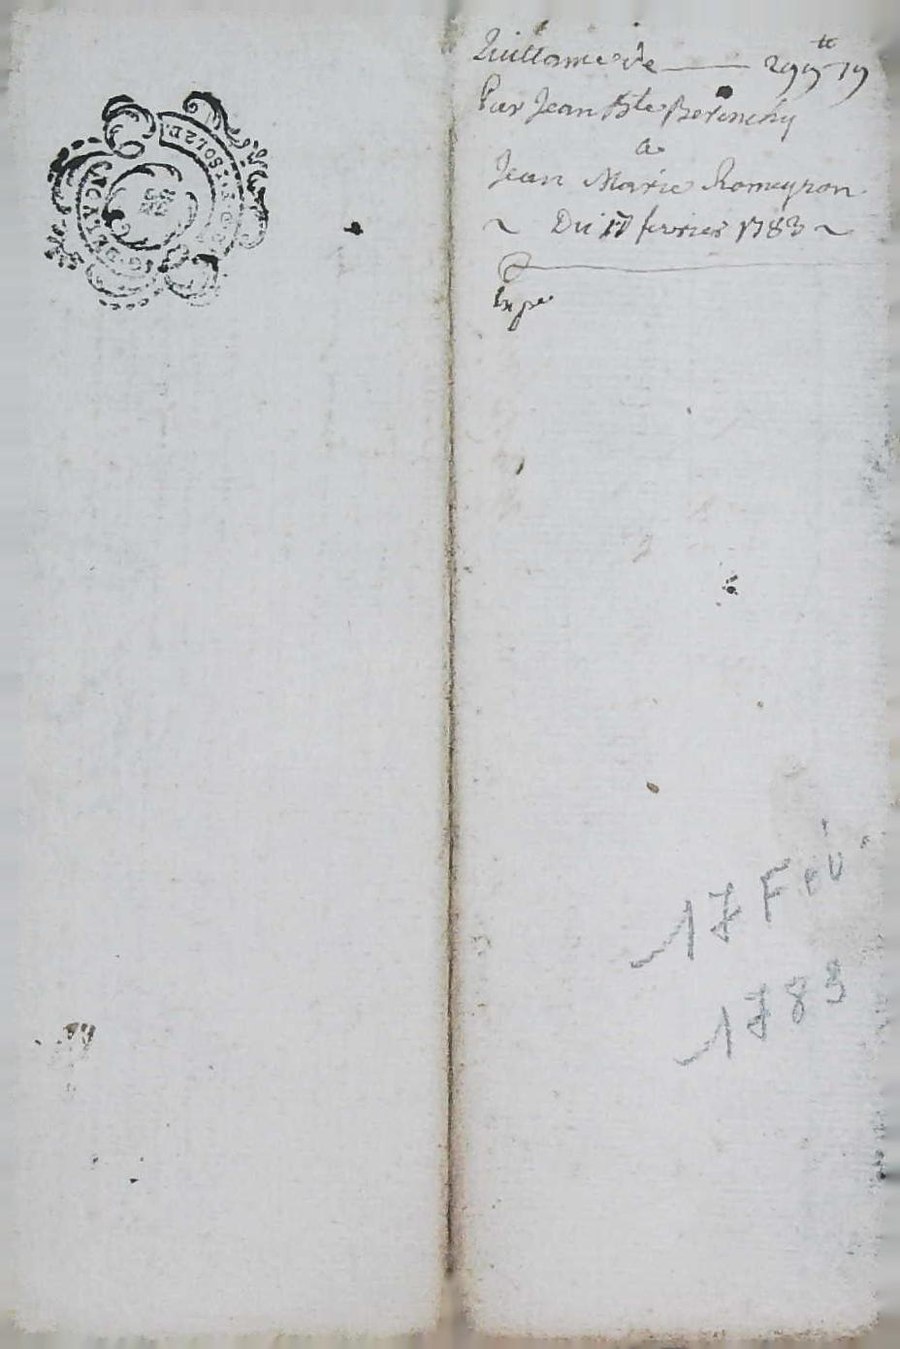 Quittance de — 299tt 19
Par Jean Bte Berenchy
a
Jean Marie Romeyron
~ Du 17 fevrier 1783 ~
Expe
17 Fev.
1783